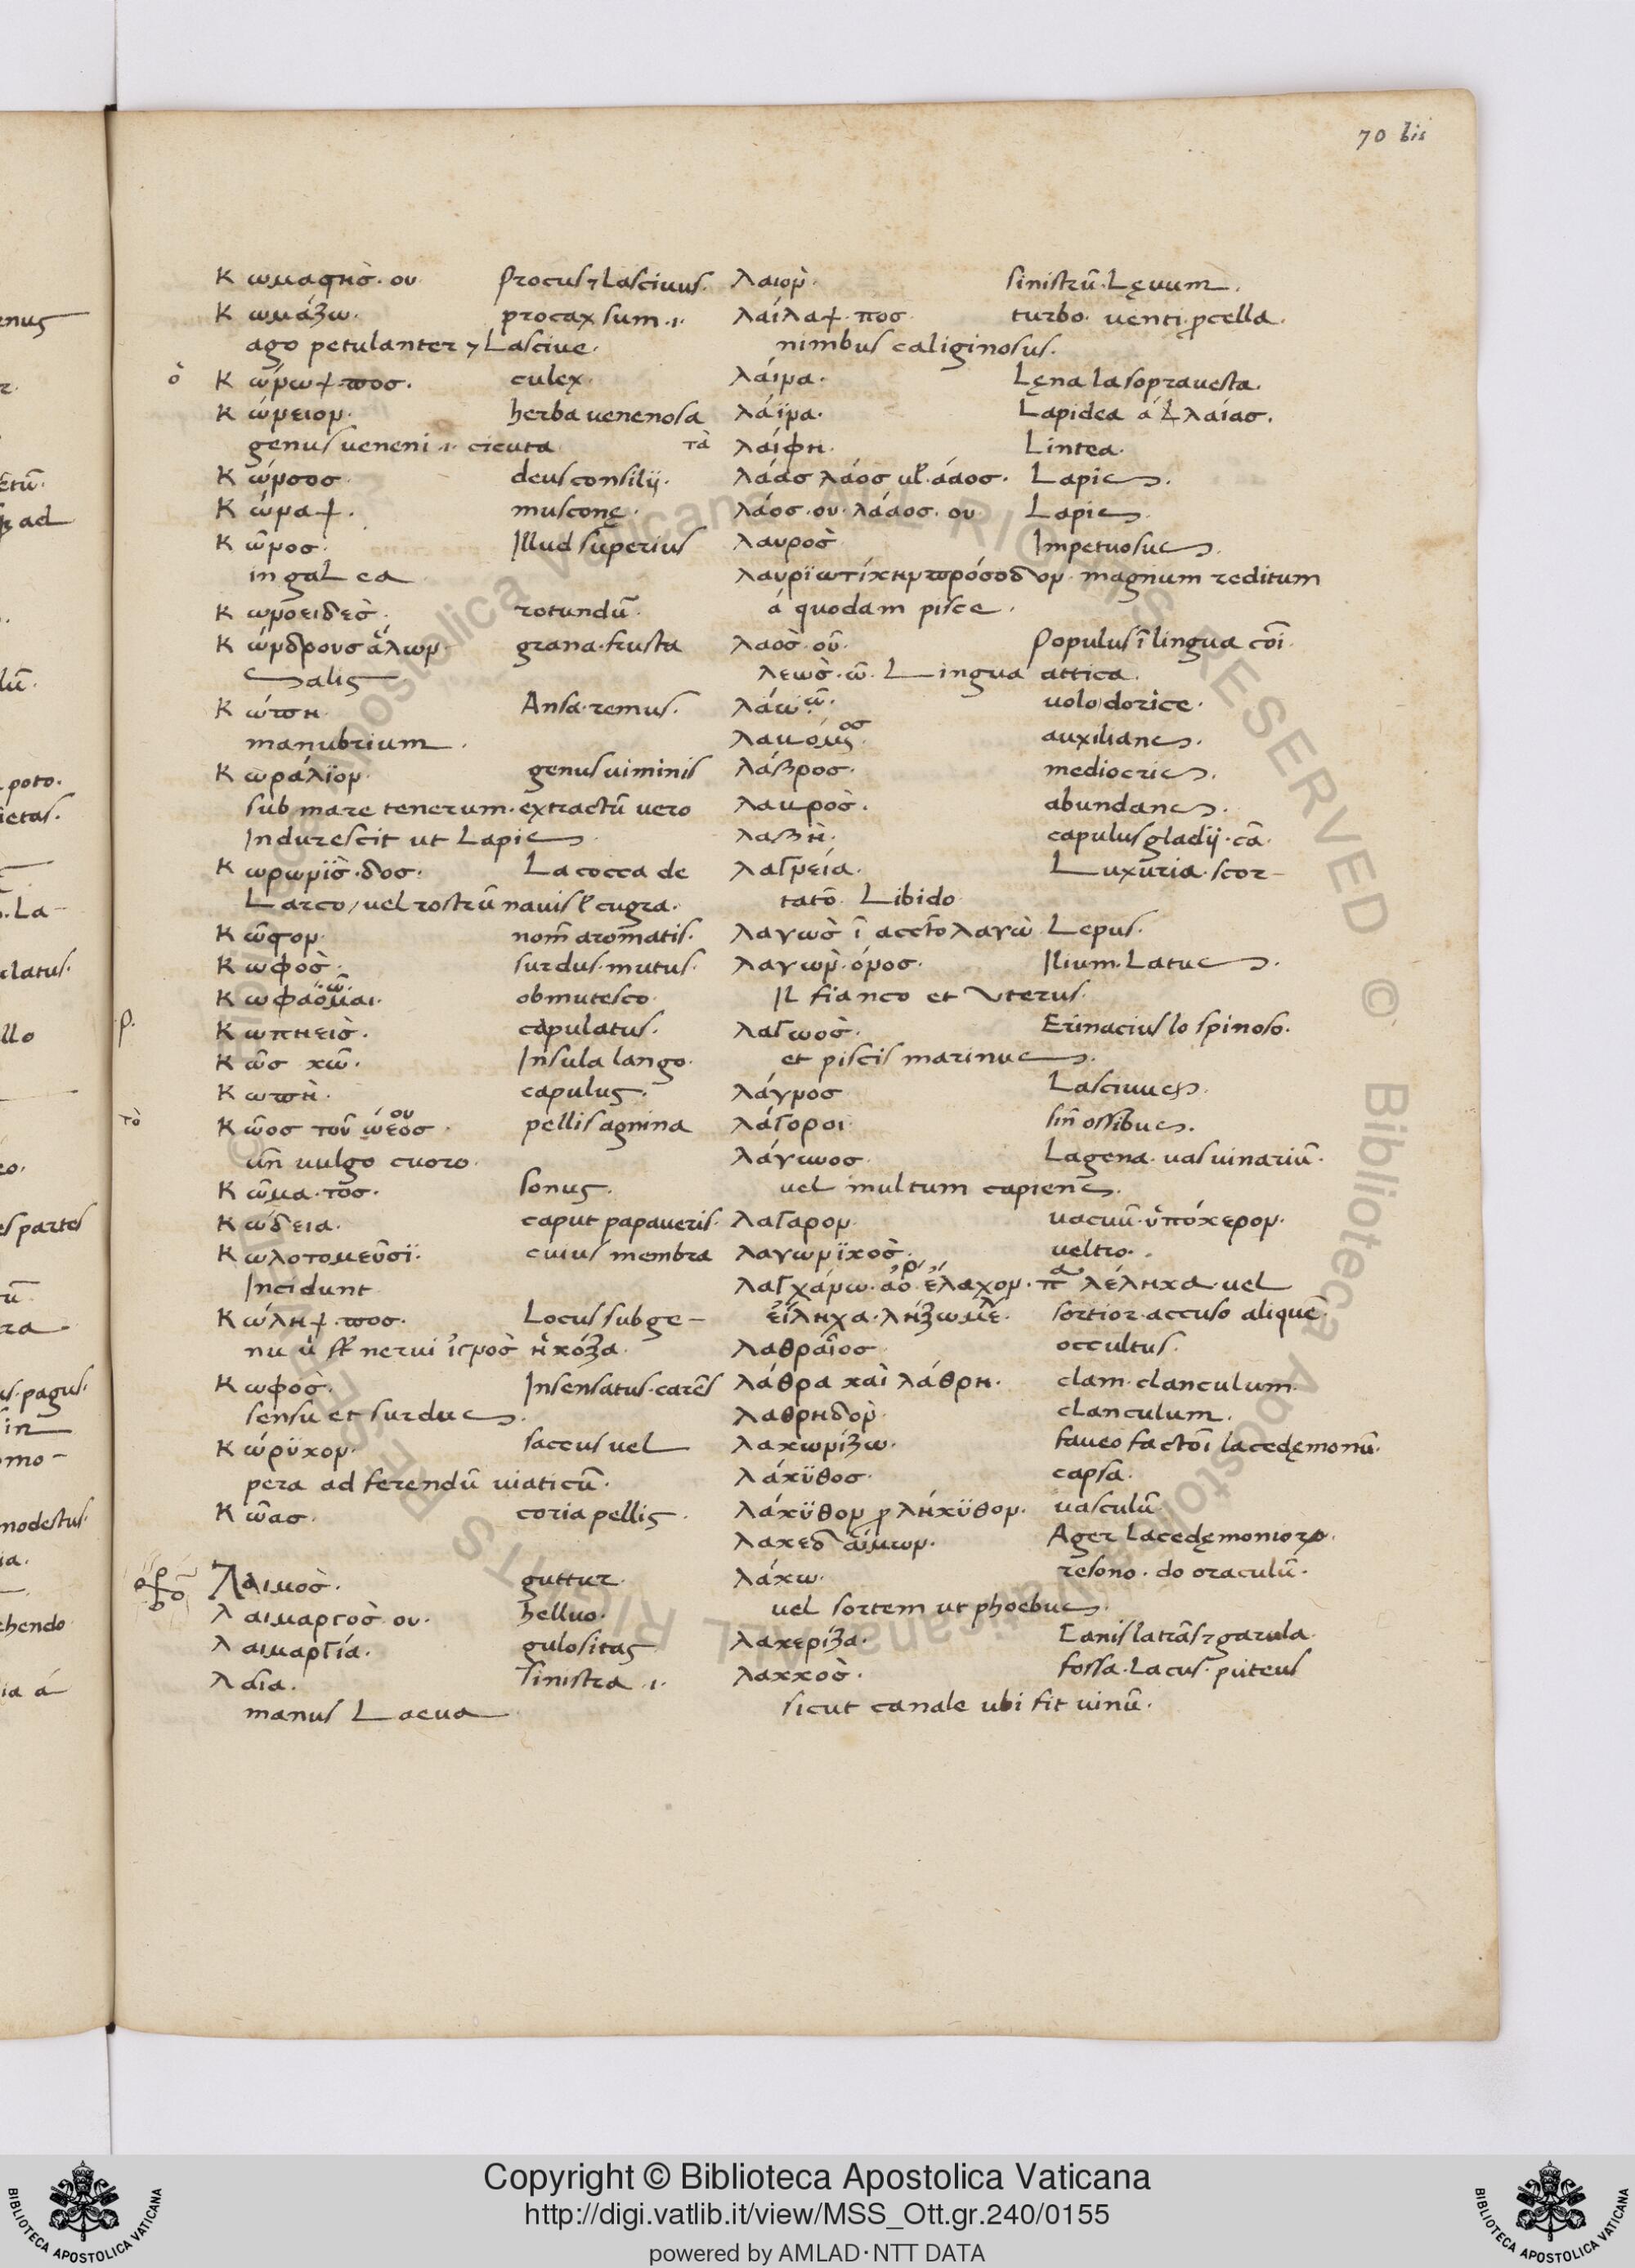 70 bis
Κ ωμαστὴσ· ου· procus ⁊ Lasciuus.
Κ ωμάζω. procax sum .ı.
ago petulanter ⁊ Lasciue.
ὁ Κ ώνωψ πος. culex.
Κ ώνειον. herba uenenosa
genus ueneni .ı. cicuta
Κ ώνσος deus consilij.
Κ ώναψ. muscone.
Κ ῶνος. Illud superius
in galea
Κ ωνοειδεσ̀. rotundū.
Κ ώνδρουσ ἅλων grana. frusta
Salis
Κ ώπη Ansa. remus.
manubrium.
Κ ωράλϊον. genus uiminis
sub mare tenerum. extractū uero
Indurescit ut Lapis
Κ ωρωνῒσ· δος. La cocca de
Larco / uel rostrū nauis
Κ ῶστον. nom̄ aromatis.
Κ ωφοσ̀. surdus. mutus.
Κ ωφαόμαι. obmutesco.
Κ ωπηεισ̀. capulatus.
Κ ῶσ κῶ. Insula lango.
Κ ωπὴ. capulus.
τὸ Κ ῶος τοῦ pellis agnina
uulgo cuoro.
Κ ῶμα· τος. sonus.
Κ ώδεια. caput papaueris.
Κ ωλοτομεῦσϊ. cuius membra
Incidunt
Κ ώληψ· πος. Locus sub ge-
nu nerui
Κ ωφοσ̀. Insensatus. carēs
sensu et surdus.
Κ ώρϋκον. saccus uel
pera ad ferendū uiaticū.
Κ ῶασ. coria pellis.
Λαιμοσ̀. guttur.
λ αιμαργοσ̀ ου. helluo.
λ αιμαργία. gulositas
λ αια. sinistra .ı.
manus Laeua
λαιον̀. sinistrū. Lęuum.
λαίλαψ· πος. turbo. uenti. ꝓcella.
nimbus caliginosus.
λάινα. Lęna la soprauesta.
λάϊνα. Lapidea
τὰ λαίφη. Lintea.
λάασ λάος άαος. Lapis.
λάος· ου· λάαος· ου Lapis.
λαυροσ̀ Impetuosus.
λαυρϊωτίκην πρόσοδον. magnum reditum
á quodam pisce.
λαοσ̀· οῦ. Populus ī lingua cōi.
λεωσ̀· ῶ. Lingua attica.
λάω uolo dorice.
auxilians.
λάβρος. mediocris.
λαυροσ̀. abundans.
λαβὴ. capulus gladij.
λαγνεία. Luxuria. scor-
tatō. Libido
λαγωσ̀ λαγὼ Lepus.
λαγων̀· όνος. Ilium. Latus.
Il fianco et Vterus.
λαγωοσ̀. Erinacius lo spinoso.
et piscis marinus.
λάγνος Lasciuus.
λάγοροι sin̄ ossibus.
λάγυνος Lagena. uas uinariū.
uel multum capiens.
λαγαρον. uacuū. ὑπόκερον.
λαγωνϊκοσ̀. ueltro.
λαγχάνω· ἔλαχον· λέληχα· uel
εἴληχα· sortior. accuso aliquē.
λαθραῖος occultus.
λάθρα καὶ λάθρη. clam. clanculum
λαθρηδον̀. clanculum.
λακωνίζω. faueo lacedęmonū.
λάκϋθος. capsa.
λάκϋθον ꝓ λήκϋθον. uasculū
λακεδαίμων. Ager Lacedęmonior̄
λάκω. resono. do oraculū.
uel sortem ut phoebus.
λακερίζα. Canis latrās ⁊ garula.
λακκοσ̀. fossa. Lacus. puteus
sicut canale ubi fit uinū.
Copyright © Biblioteca Apostolica Vaticana
http://digi.vatlib.it/view/MSS_Ott.gr.240/0155
powered by AMLAD·NTT DATA